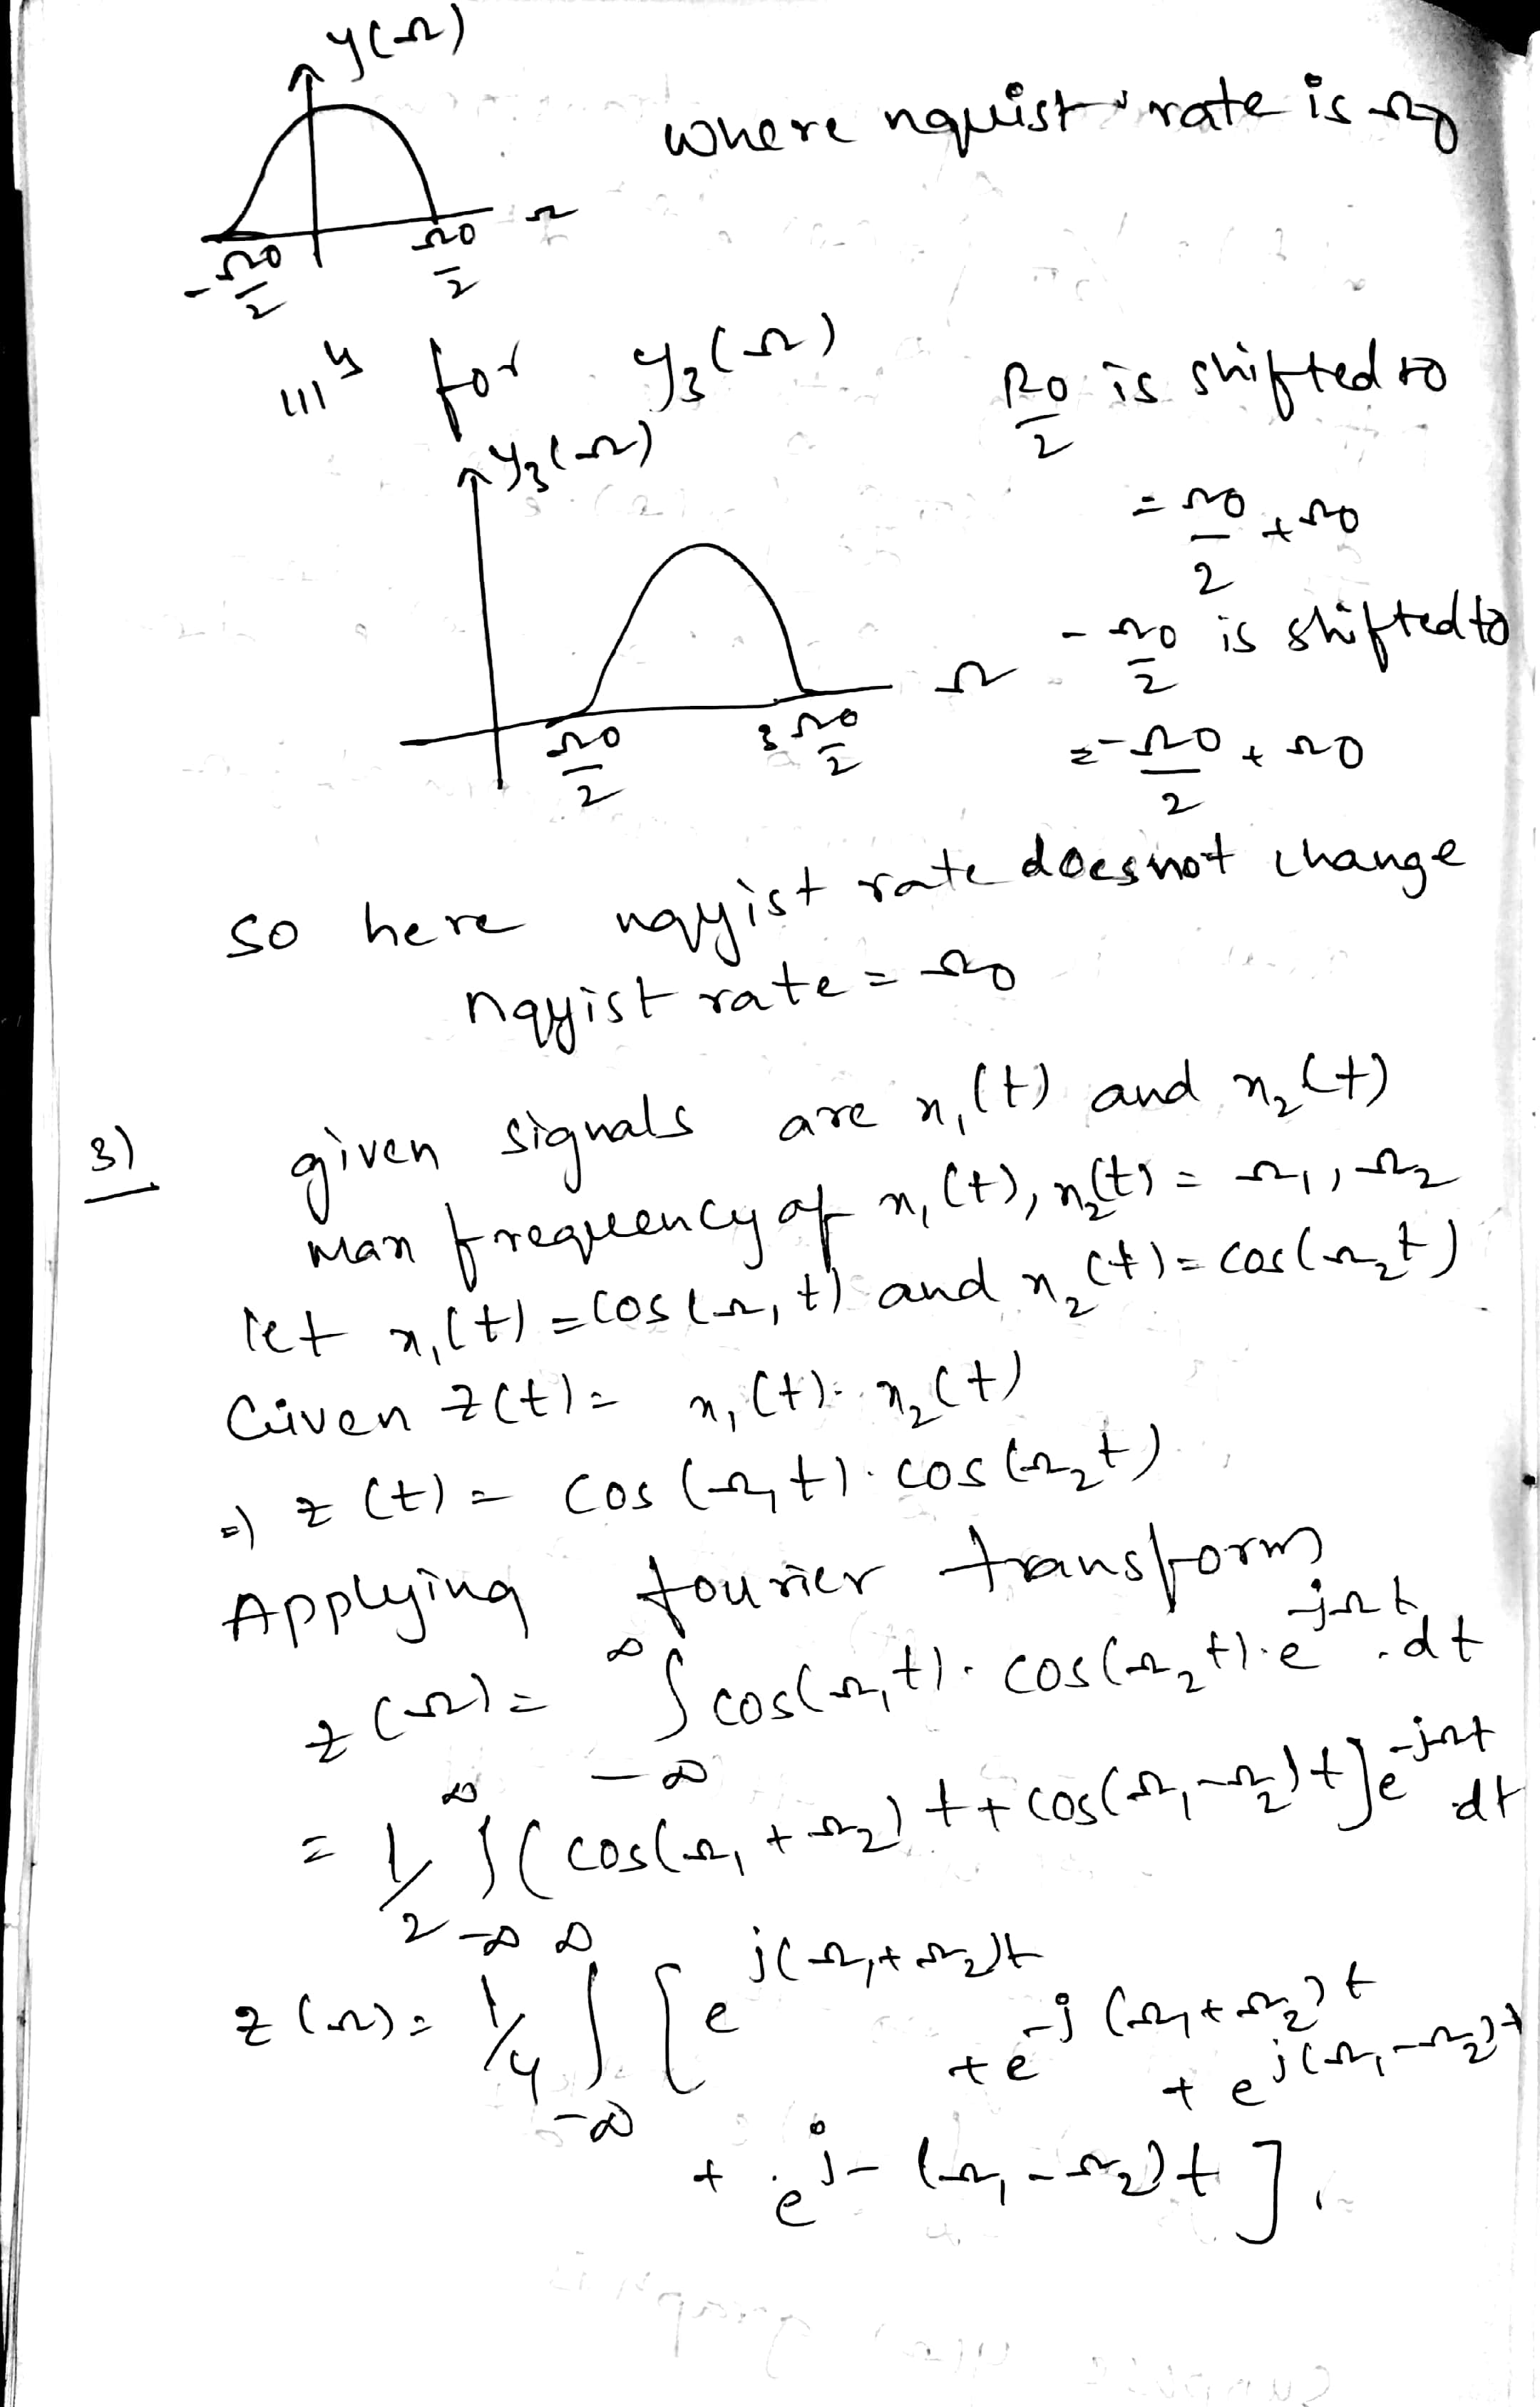 y(Ω)
where nquist rate is Ω0
-Ω0/2 Ω0/2 Ω
111ly for y3(Ω)
Ω0/2 is shifted to
y3(Ω)
= Ω0/2 + Ω0
-Ω0/2 is shifted to
Ω0/2 3Ω0/2 Ω
= -Ω0/2 + Ω0
so here nqyist rate does not change
nqyist rate = Ω0
3) given signals are x1(t) and x2(t)
Max frequency of x1(t), x2(t) = Ω1, Ω2
let x1(t) = cos(Ω1t) and x2(t) = cos(Ω2t)
Given z(t) = x1(t). x2(t)
=) z(t) = cos(Ω1t). cos(Ω2t)
Applying fourier transform
z(Ω) = ∫_{-∞}^{∞} cos(Ω1t). cos(Ω2t). e^{-jΩt}. dt
= 1/2 ∫_{-∞}^{∞} (cos(Ω1+Ω2)t + cos(Ω1-Ω2)t] e^{-jΩt} dt
z(Ω) = 1/4 ∫_{-∞}^{∞} [e^{j(Ω1+Ω2)t} + e^{-j(Ω1+Ω2)t} + e^{j(Ω1-Ω2)t}
+ e^{j-(Ω1-Ω2)t}].